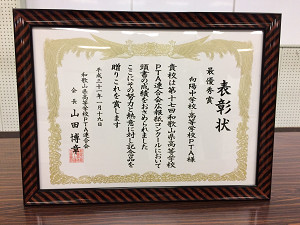 表彰状
最優秀賞
向陽中学校 高等学校PTA様
貴校は第十七回和歌山県高等学校
PTA連合会広報紙コンクールにおいて
頭書の成績をおさめられました
ここにその努力と熱意に対し記念品を
贈りこれを賞します
平成二十一年一月十九日
和歌山県高等学校PTA連合会
会長 山田博章